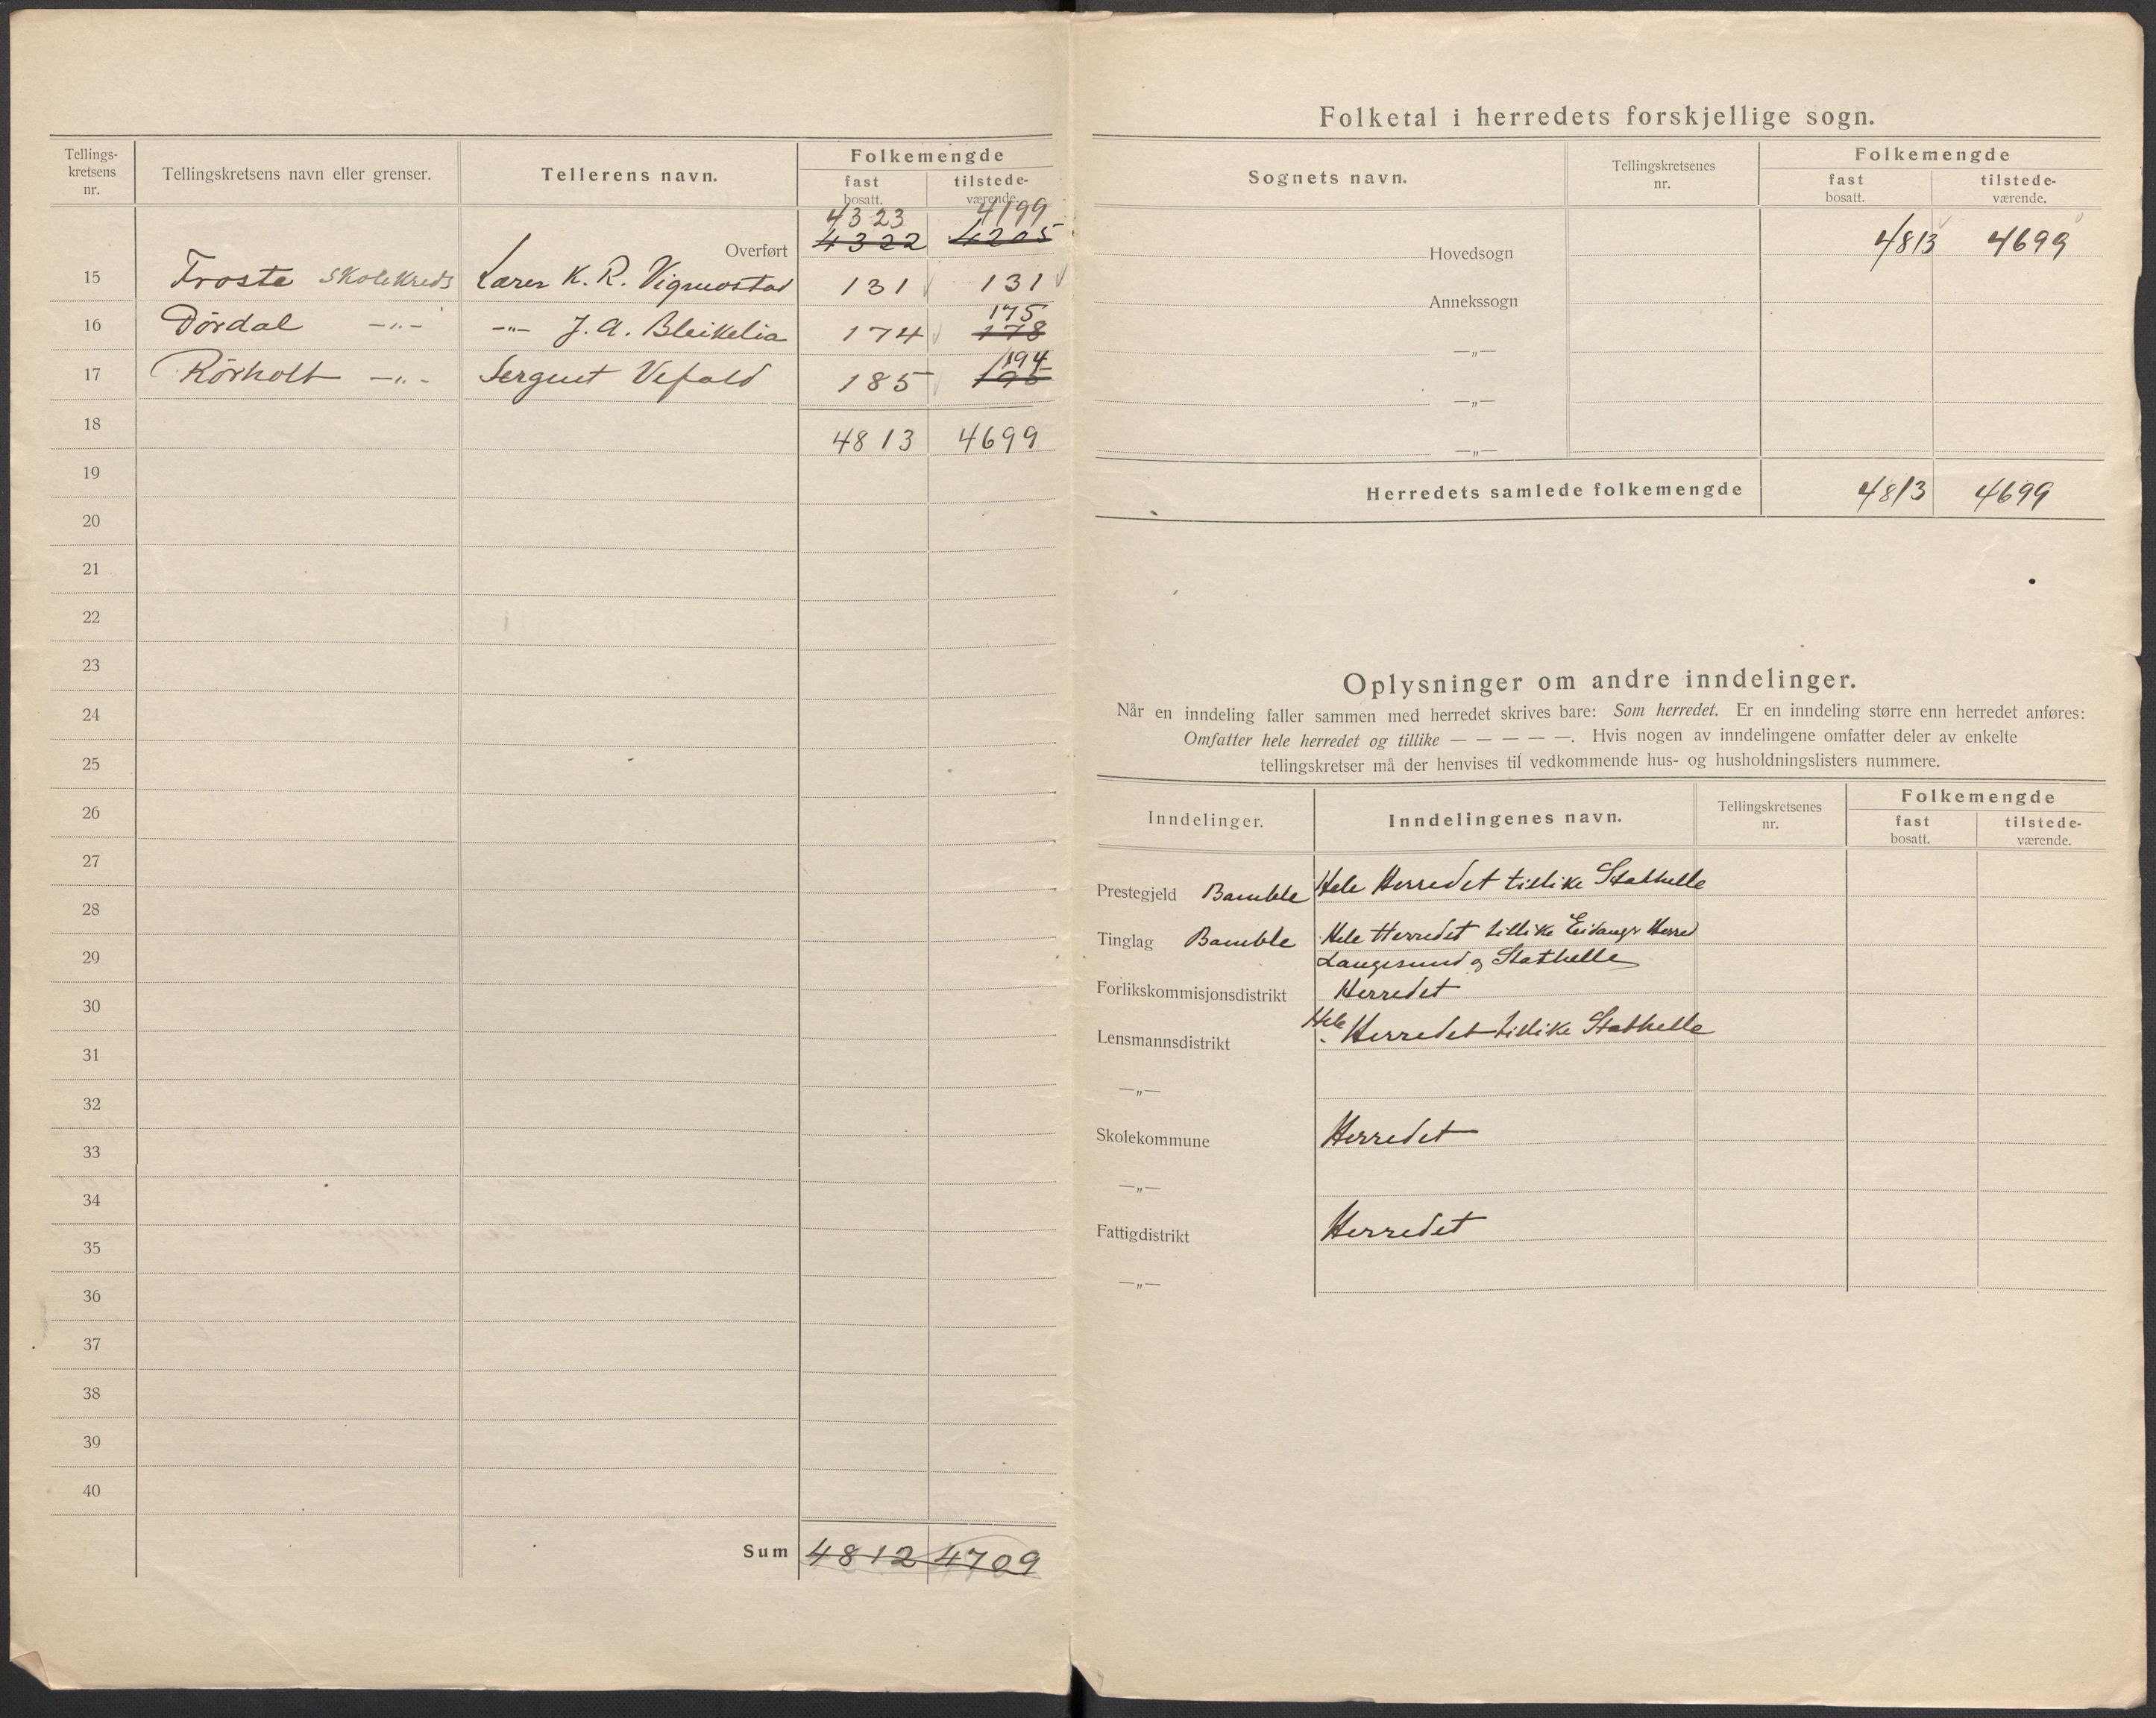 Tellings-
kretsens
nr.
Tellingskretsens navn eller grenser.
Tellerens navn.
Folkemengde
fast
bosatt.
tilstede-
værende.
4323 4199
Overført 4322 4205
15 Froste Skolekreds Lærer K. R. Vigmostad 131 131
175
16 Dördal —„— —„— J. A. Bleikelia 174 178
194
17 Rörholt —„— 185 195
18 4813 4699
19
20
21
22
23
24
25
26
27
28
29
30
31
32
33
34
35
36
37
38
39
40
Sum 4812 4709
Folketal i herredets forskjellige sogn.
Sognets navn.
Tellingskretsenes
nr.
Folkemengde
fast
bosatt.
tilstede-
værende.
Hovedsogn 4813 4699
Annekssogn
—„—
—„—
—„—
Herredets samlede folkemengde 4813 4699
Oplysninger om andre inndelinger.
Når en inndeling faller sammen med herredet skrives bare: Som herredet. Er en inndeling større enn herredet anføres:
Omfatter hele herredet og tillike — — — — —. Hvis nogen av inndelingene omfatter deler av enkelte
tellingskretser må der henvises til vedkommende hus- og husholdningslisters nummere.
Inndelinger.
Inndelingenes navn.
Tellingskretsenes
nr.
Folkemengde
fast
bosatt.
tilstede-
værende.
Prestegjeld Bamble Hele Herredet tillike Stathelle
Tinglag Bamble Hele Herredet tillike Eidanger Herred
Langesund og Stathelle
Forlikskommisjonsdistrikt Herredet
Lensmannsdistrikt Hele Herredet tillike Stathelle
—„—
Skolekommune Herredet
—„—
Fattigdistrikt Herredet
—„—